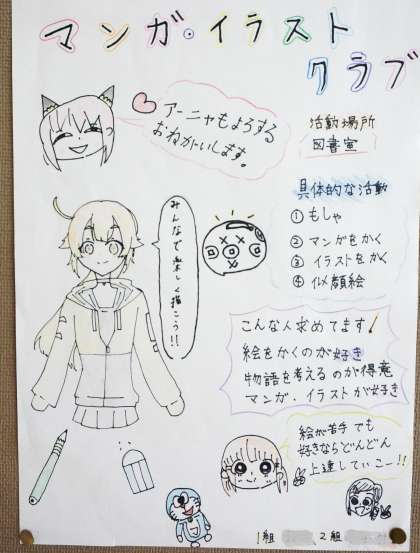 マンガ・イラスト
クラブ
アーニャもよろする
おねがいします。
活動場所
図書室
みんなで楽しく描こう!!
具体的な活動
① もしゃ
② マンガをかく
③ イラストをかく
④ 似顔絵
こんな人求めてます!
絵をかくのが好き
物語を考えるのが得意
マンガ、イラストが好き
絵が苦手でも
好きならどんどん
上達していこー!!
1組 2組